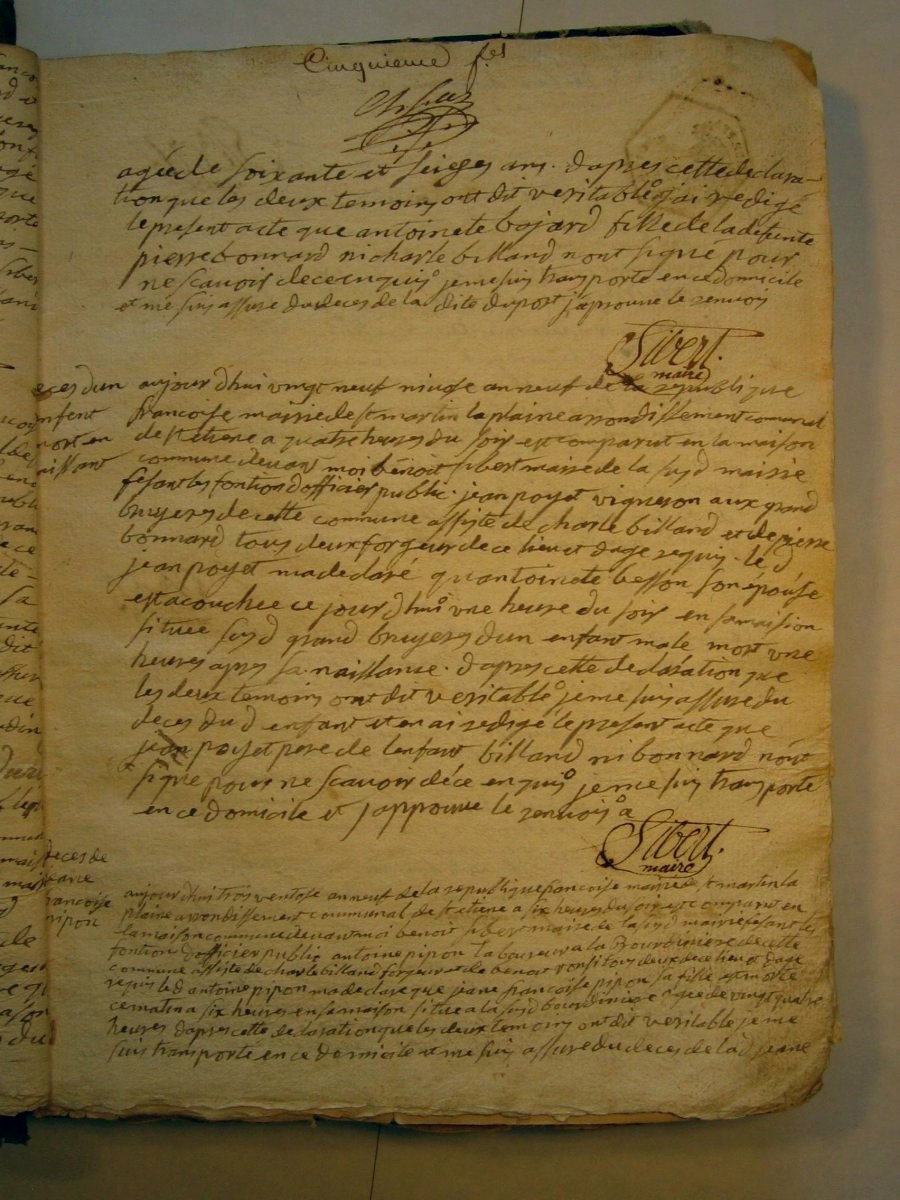 Cinquieme f.et
agée de soixante et seizes ans. d'apres cette declara-
tion que les deux temoins ont dit veritable j'ai redigé
le present acte que antoinete bojard fille de la defunte
pierre bonnard ni charle billand n ont signé pour
ne scavoir de ce enquis je me suis transporte en ce domicile
et me suis assure du deces de la dite dupost j'aprouve le renvois
Sibert
maire
eces d'un
enfent
mort en
aissant
aujour dhui vingt neuf nivose an neuf de la republique
francoise mairie de st martin la plaine arrondissement communal
de st etiene a quatre heures du soir est comparut en la maison
commune devant moi benoit sibert maire de la susd mairie
fesant les fontions d'officier public. jean poyet vigneron aux grand
bruyeres de cette commune assisté de charle billand et de pierre
bonnard tous deux forgeur de ce lieu et d'age requis. le d
jean poyet ma declaré qu antoinete besson son épouse
est acouchee ce jour d hui une heure du soir en sa maision
située susd grand bruyers d'un enfant male mort une
heures apres sa naissanse. d'apres cette declaration que
les deux temoins ont dit veritable je me suis assure du
deces du d enfant et en ai redigé le present acte que
jean poyet pere de lenfant billand ni bonnard n'ont
signe pour ne scavoir de ce enquis je me suis transporte
en ce domicile et j approuve le renvois
Sibert
maire
deces de
jeane
francoise
pipon
aujour dhui trois ventose an neuf de la republique francoise mairie de st martin la
plaine arrondissement communal de st etiene a six heures du soir est comparut en
la maison commune devant moi benoit sibert maire de la susd mairie fesant les
fontion d'officier public antoine pipon laboureur a la Bourdiniere de cette
commune assisté de charle billand forgeur et de benoit ronsi tous deux de ce lieu et d'age
requis le d antoine pipon ma declare que jeane francoise pipon sa fille est morte
ce matin a six heures en sa maison situe a la susd bourdiniere agée de vingt quatre
heures d'apres cette declaration que les deux temoins ont dit veritable je me
suis transporte en ce domicile et me suis assure du deces de la d jeane